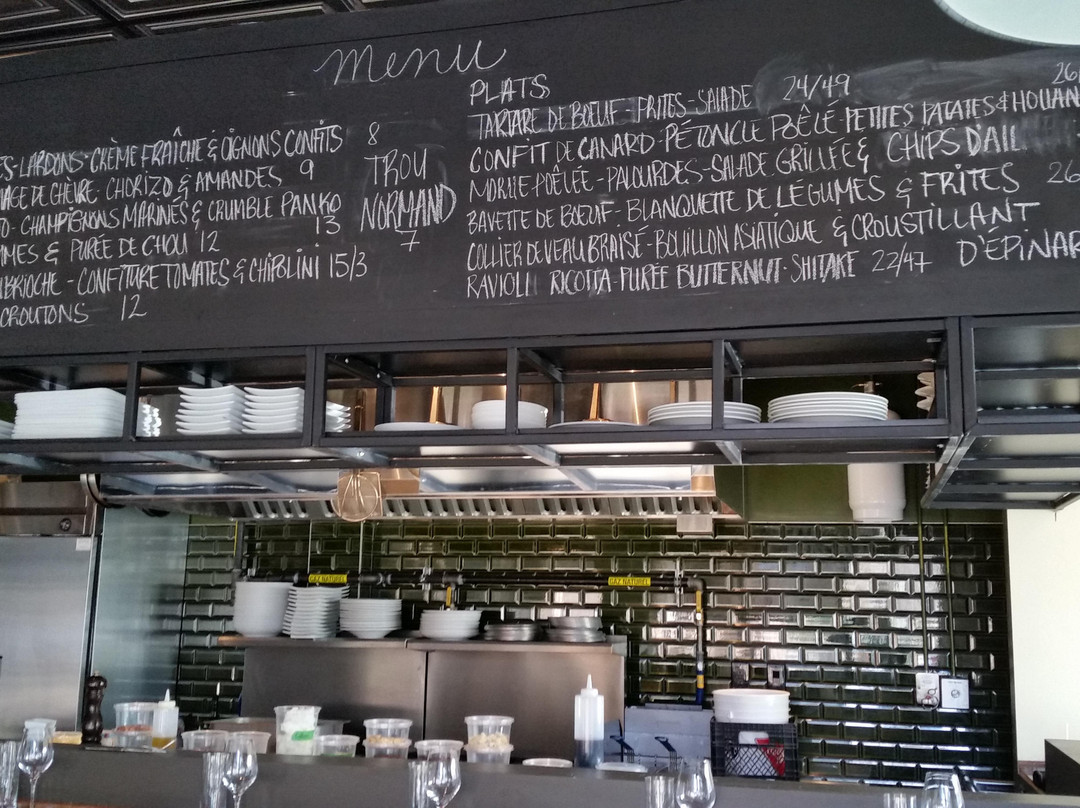 menu
LARDONS - CRÈME FRAÎCHE & OIGNONS CONFITS 8
DE CHÈVRE - CHORIZO & AMANDES 9
CHAMPIGNONS MARINÉS & CRUMBLE PANKO 13
& PURÉE DE CHOU 12
BRIOCHE - CONFITURE TOMATES & CHIPOLINI 15/3
CROUTONS 12
TROU
NORMAND
7
PLATS
TARTARE DE BŒUF - FRITES - SALADE 24/49
CONFIT DE CANARD - PÉTONCLE POÊLÉ PETITES PATATES & 26
MORUE POÊLÉE - PALOURDES - SALADE GRILLÉE & CHIPS D'AIL
BAVETTE DE BŒUF - BLANQUETTE DE LÉGUMES & FRITES 26
COLLIER DE VEAU BRAISÉ - BOUILLON ASIATIQUE & CROUSTILLANT
RAVIOLI RICOTTA - PURÉE BUTTERNUT - SHITAKE 22/47 D'ÉPINAR
GAZ NATUREL
GAZ NATUREL